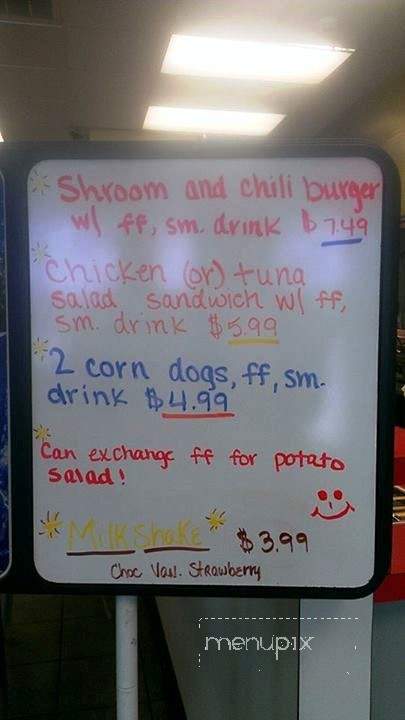 Shroom and chili burger
w/ ff, sm. drink $7.49
Chicken (or) tuna
salad sandwich w/ ff,
sm. drink $5.99
2 corn dogs, ff, sm.
drink $4.99
Can exchange ff for potato
salad!
Milkshake $3.99
Choc Van. Strawberry
menupix